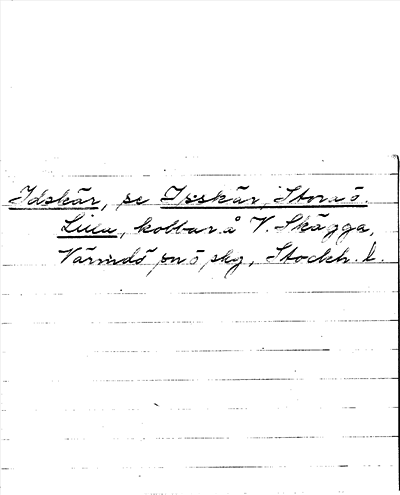 Idskär, se Isskär, Stora ö.
Lilla, kobbar å V. Skägga,
Värmdö sn o skg, Stockh. l.